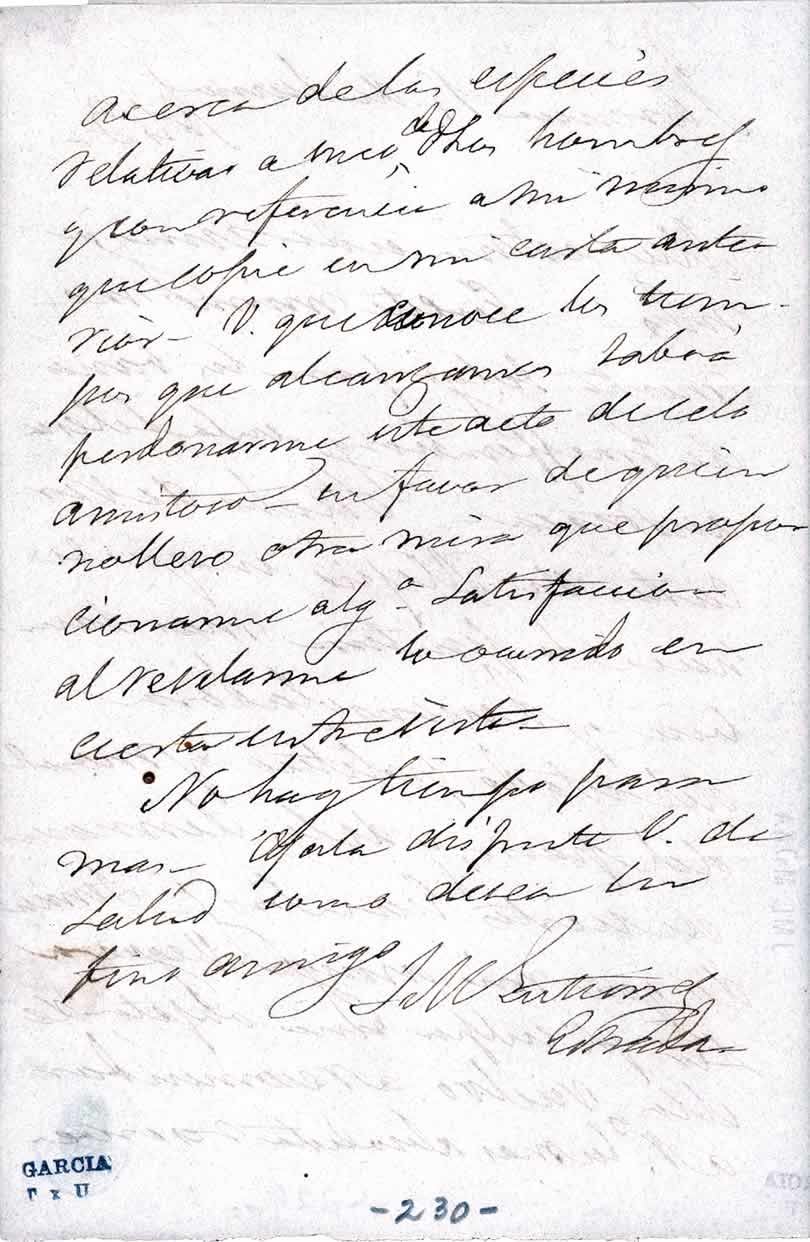 acerca de las especies
relativas a unos de dhos hombres
y con referencia a mi mismo
que copie en mi carta ante
rior - V. que conoce los tiem-
pos que alcanzamos sabrá
perdonarme este acto de celo
amistoso - en favor de quien
no llevo otra mira que propor
cionarme alg.a satisfaccion
al revelarme lo ocurrido en
cierta entrevista -
No hay tiempo para
mas - Ojala disfrute V. de
salud como desea su
fino amigo J M Gutiérrez
Estrada
GARCIA
-230-